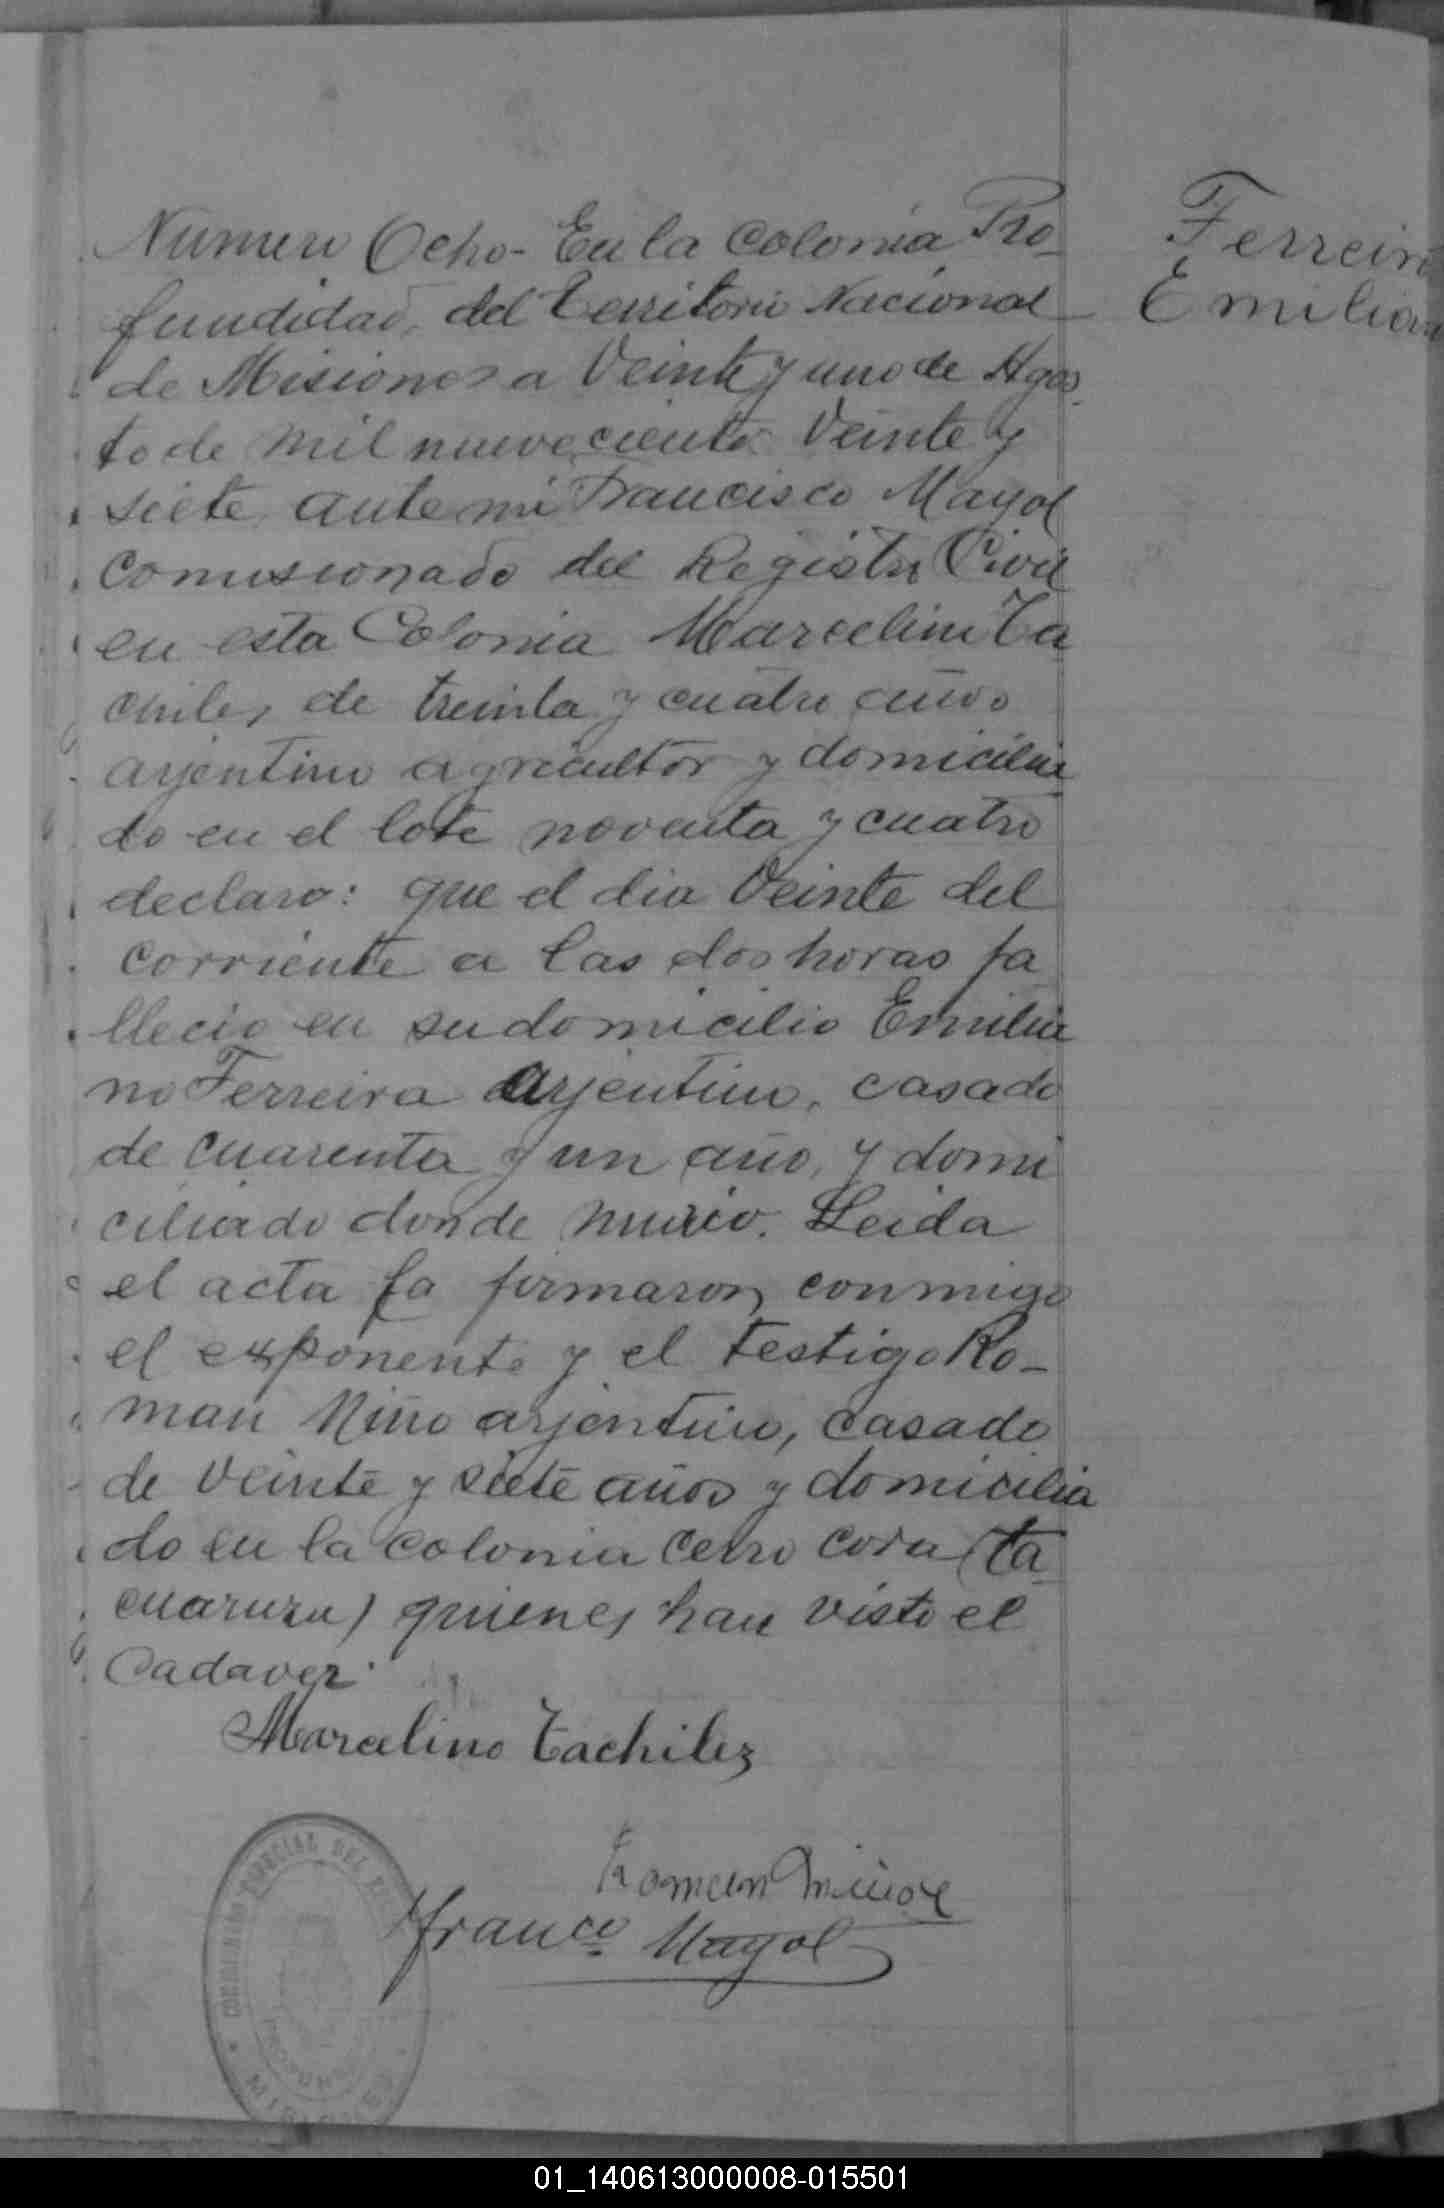 Numero Ocho- En la Colonia Pro-
fundidad, del Territorio Nacional
de Misiones a Veinte y uno de Agos-
to de mil nuevecientos Veinte y
siete, ante mi Francisco Mayol
Comisionado del Registro Civil
en esta Colonia Marcelino Ta
chiles, de treinta y cuatro años
arjentino agricultor y domicilia
do en el lote noventa y cuatro
declaro: que el dia Veinte del
corriente a las dos horas fa
llecio en su domicilio Emilia
no Ferreira arjentino, casado
de cuarenta y un año, y domi
ciliado donde murio. Leida
el acta la firmaron conmigo
el exponente y el testigo Ro-
man Niño arjentino, casado
de veinte y siete años y domicilia
do en la colonia Cerro Cora (ta
cuaruzu) quienes han visto el
Cadaver.
Ferreira
Emiliano
Marcelino Tachilez
Roman
Franco Mayol
COMISARIO ESPECIAL DEL
01_140613000008-015501